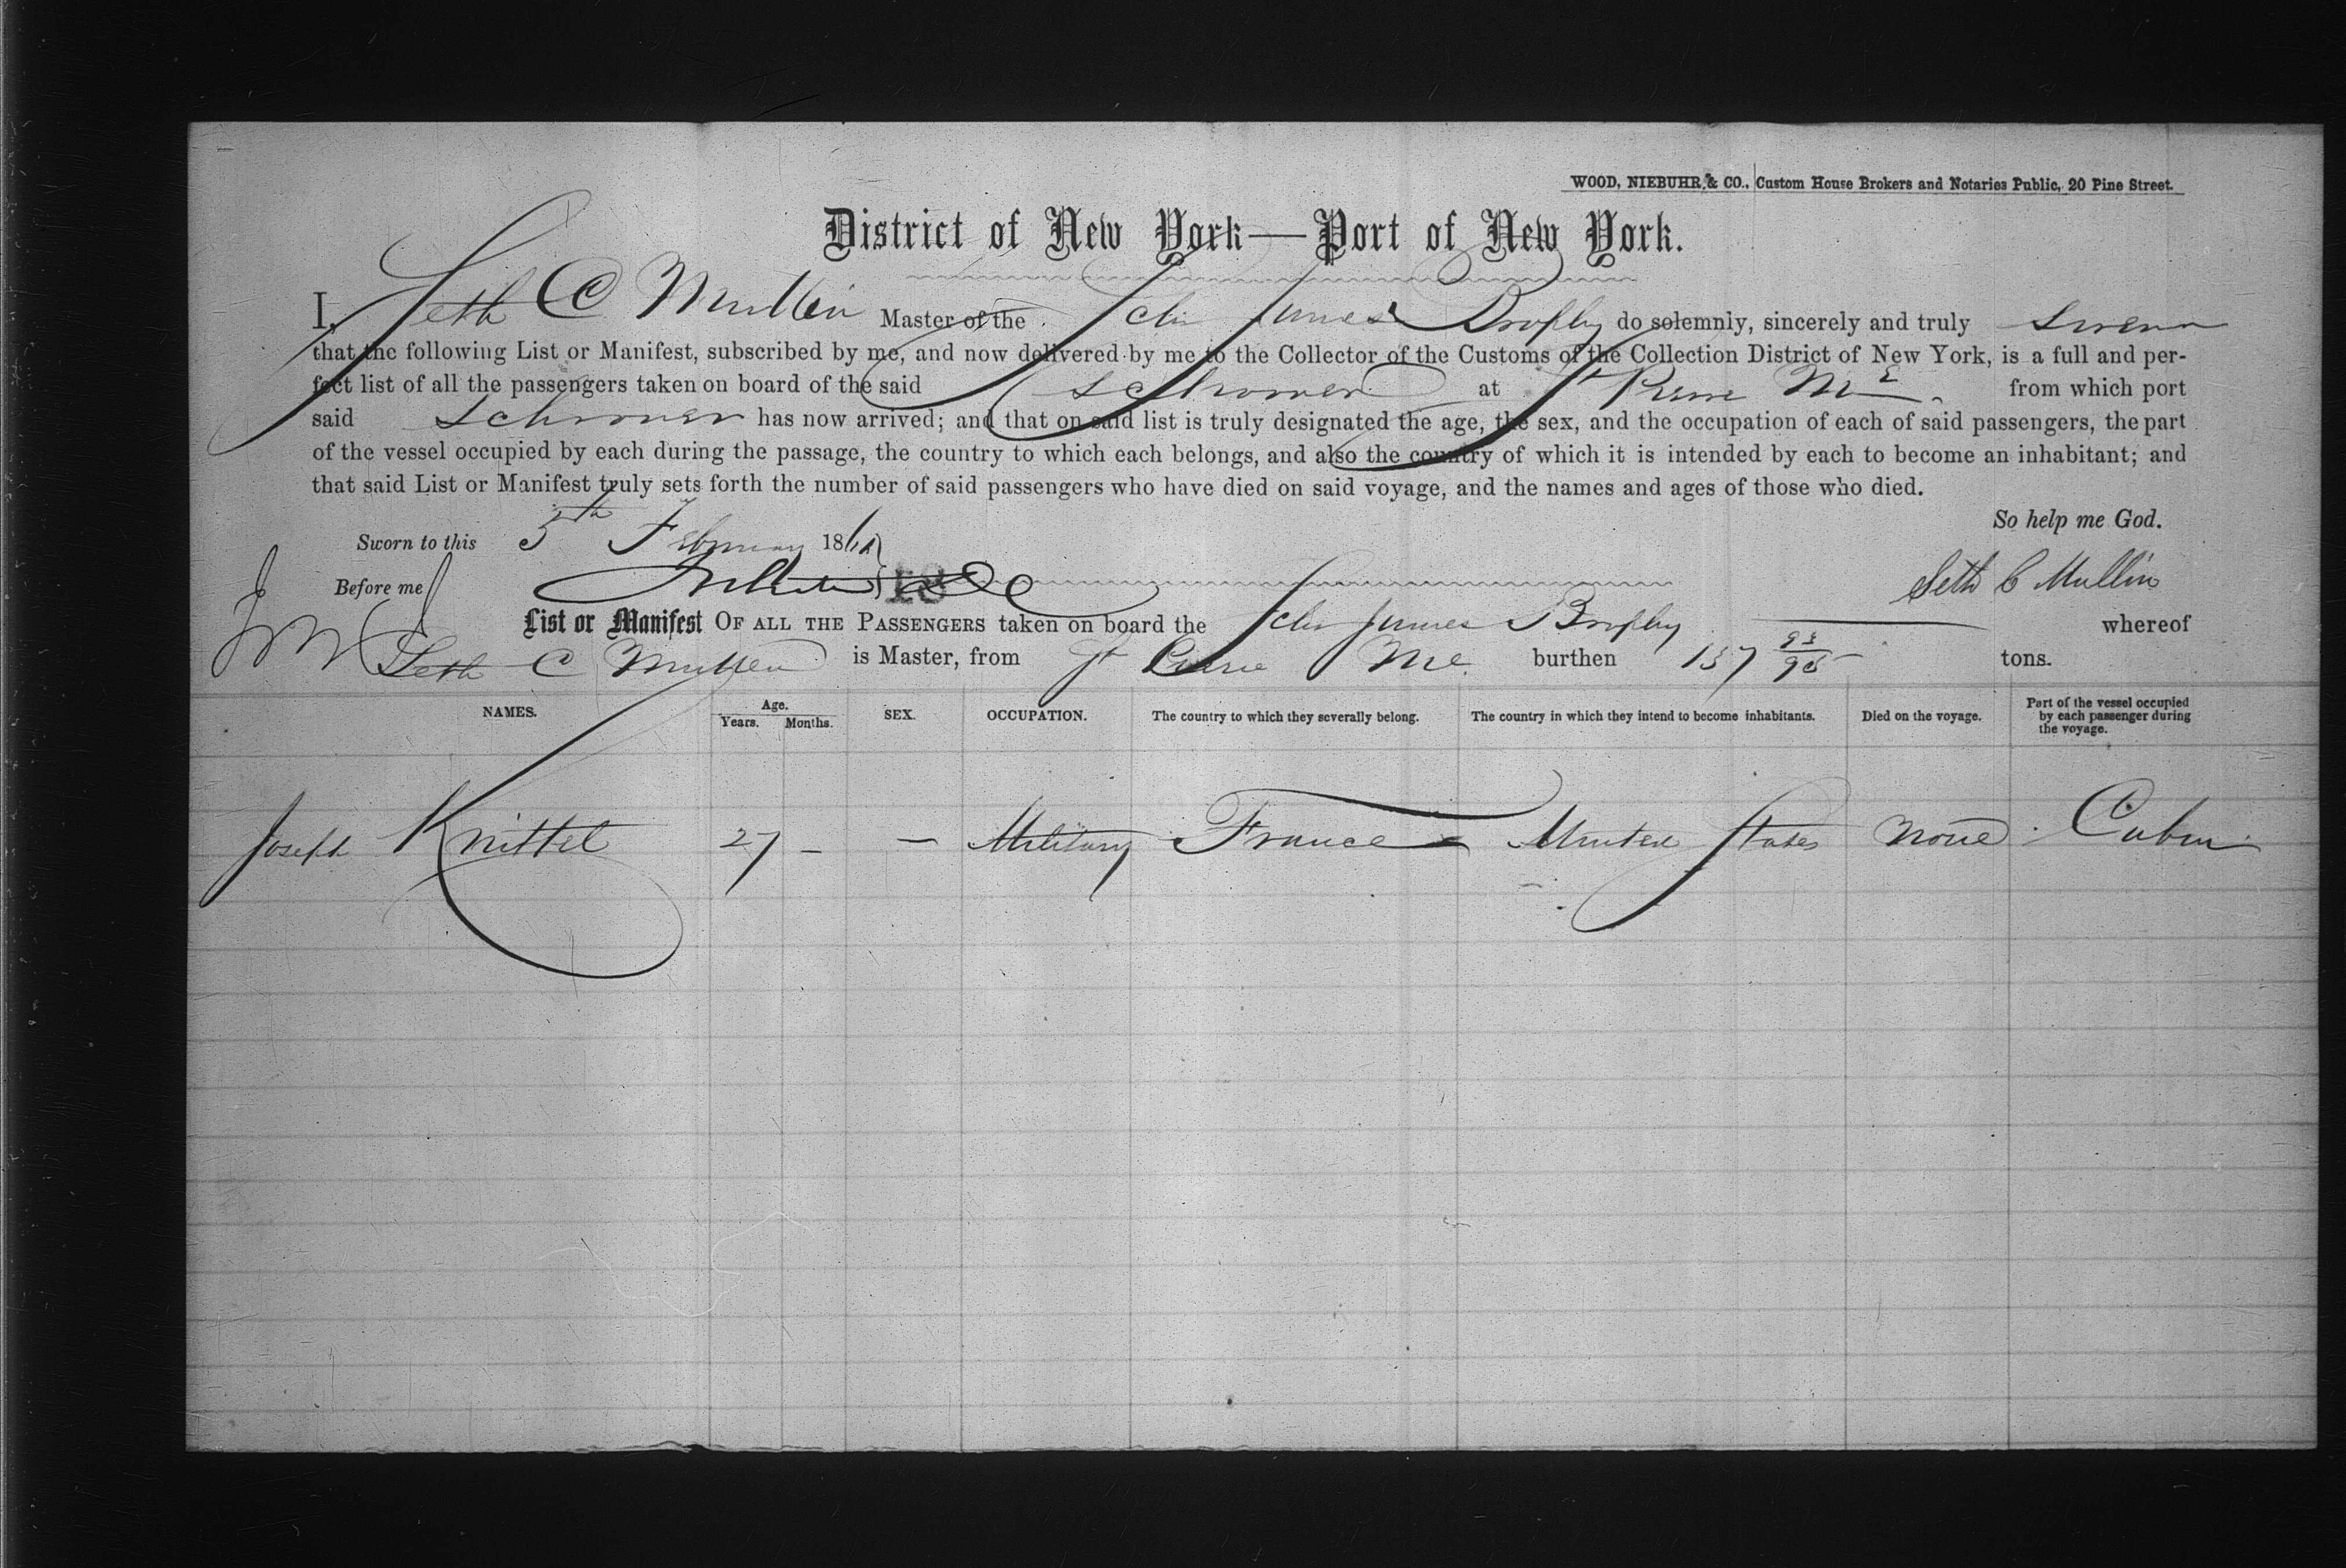 WOOD, NIEBUHR, & CO., Custom House Brokers and Notaries Public, 20 Pine Street.
District of New York—Port of New York.
I, Seth C Mullin Master of the Schr James Brophy do solemnly, sincerely and truly swear
that the following List or Manifest, subscribed by me, and now delivered by me to the Collector of the Customs of the Collection District of New York, is a full and per-
fect list of all the passengers taken on board of the said schooner at St Pierre from which port
said schooner has now arrived; and that on said list is truly designated the age, the sex, and the occupation of each of said passengers, the part
of the vessel occupied by each during the passage, the country to which each belongs, and also the country of which it is intended by each to become an inhabitant; and
that said List or Manifest truly sets forth the number of said passengers who have died on said voyage, and the names and ages of those who died.
So help me God.
Sworn to this 5th February 186
Before me
Seth C Mullin
List or Manifest OF ALL THE PASSENGERS taken on board the Schr James Brophy whereof
Seth C Mullen is Master, from St Pierre burthen 137 93/95 tons.
NAMES. Age. Years. Months. SEX. OCCUPATION. The country to which they severally belong. The country in which they intend to become inhabitants. Died on the voyage. Part of the vessel occupied by each passenger during the voyage.
Joseph Knittel 27 — — Military France United States None Cabin